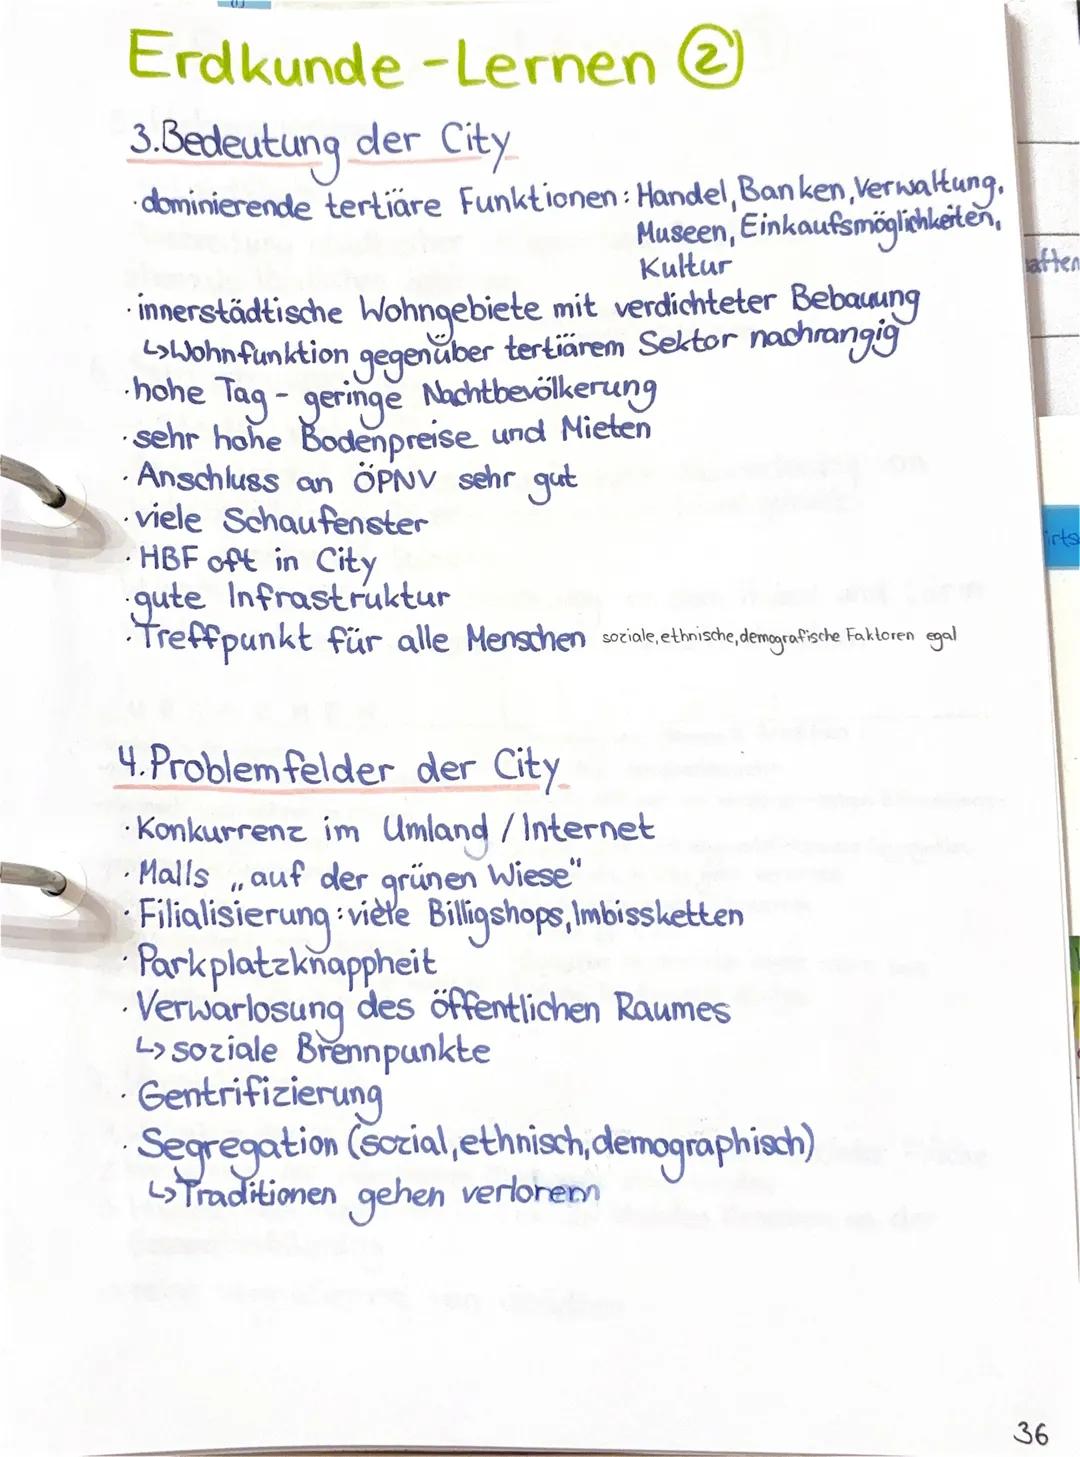 Erdkunde - Lernen ②
3. Bedeutung der City
· dominierende tertiäre Funktionen: Handel, Banken, Verwaltung,
Museen, Einkaufsmöglichkeiten,
Kultur
· innerstädtische Wohngebiete mit verdichteter Bebauung
↳ Wohnfunktion gegenüber tertiärem Sektor nachrangig
· hohe Tag - geringe Nachtbevölkerung
· sehr hohe Bodenpreise und Mieten
· Anschluss an ÖPNV sehr gut
· viele Schaufenster
· HBF oft in City
· gute Infrastruktur
· Treffpunkt für alle Menschen soziale, ethnische, demografische Faktoren egal
4. Problemfelder der City
· Konkurrenz im Umland / Internet
· Malls „auf der grünen Wiese"
· Filialisierung: viele Billigshops, Imbissketten
· Parkplatzknappheit
· Verwarlosung des öffentlichen Raumes
↳ soziale Brennpunkte
· Gentrifizierung
· Segregation (sozial, ethnisch, demographisch)
↳ Traditionen gehen verloren
36
aften
irts